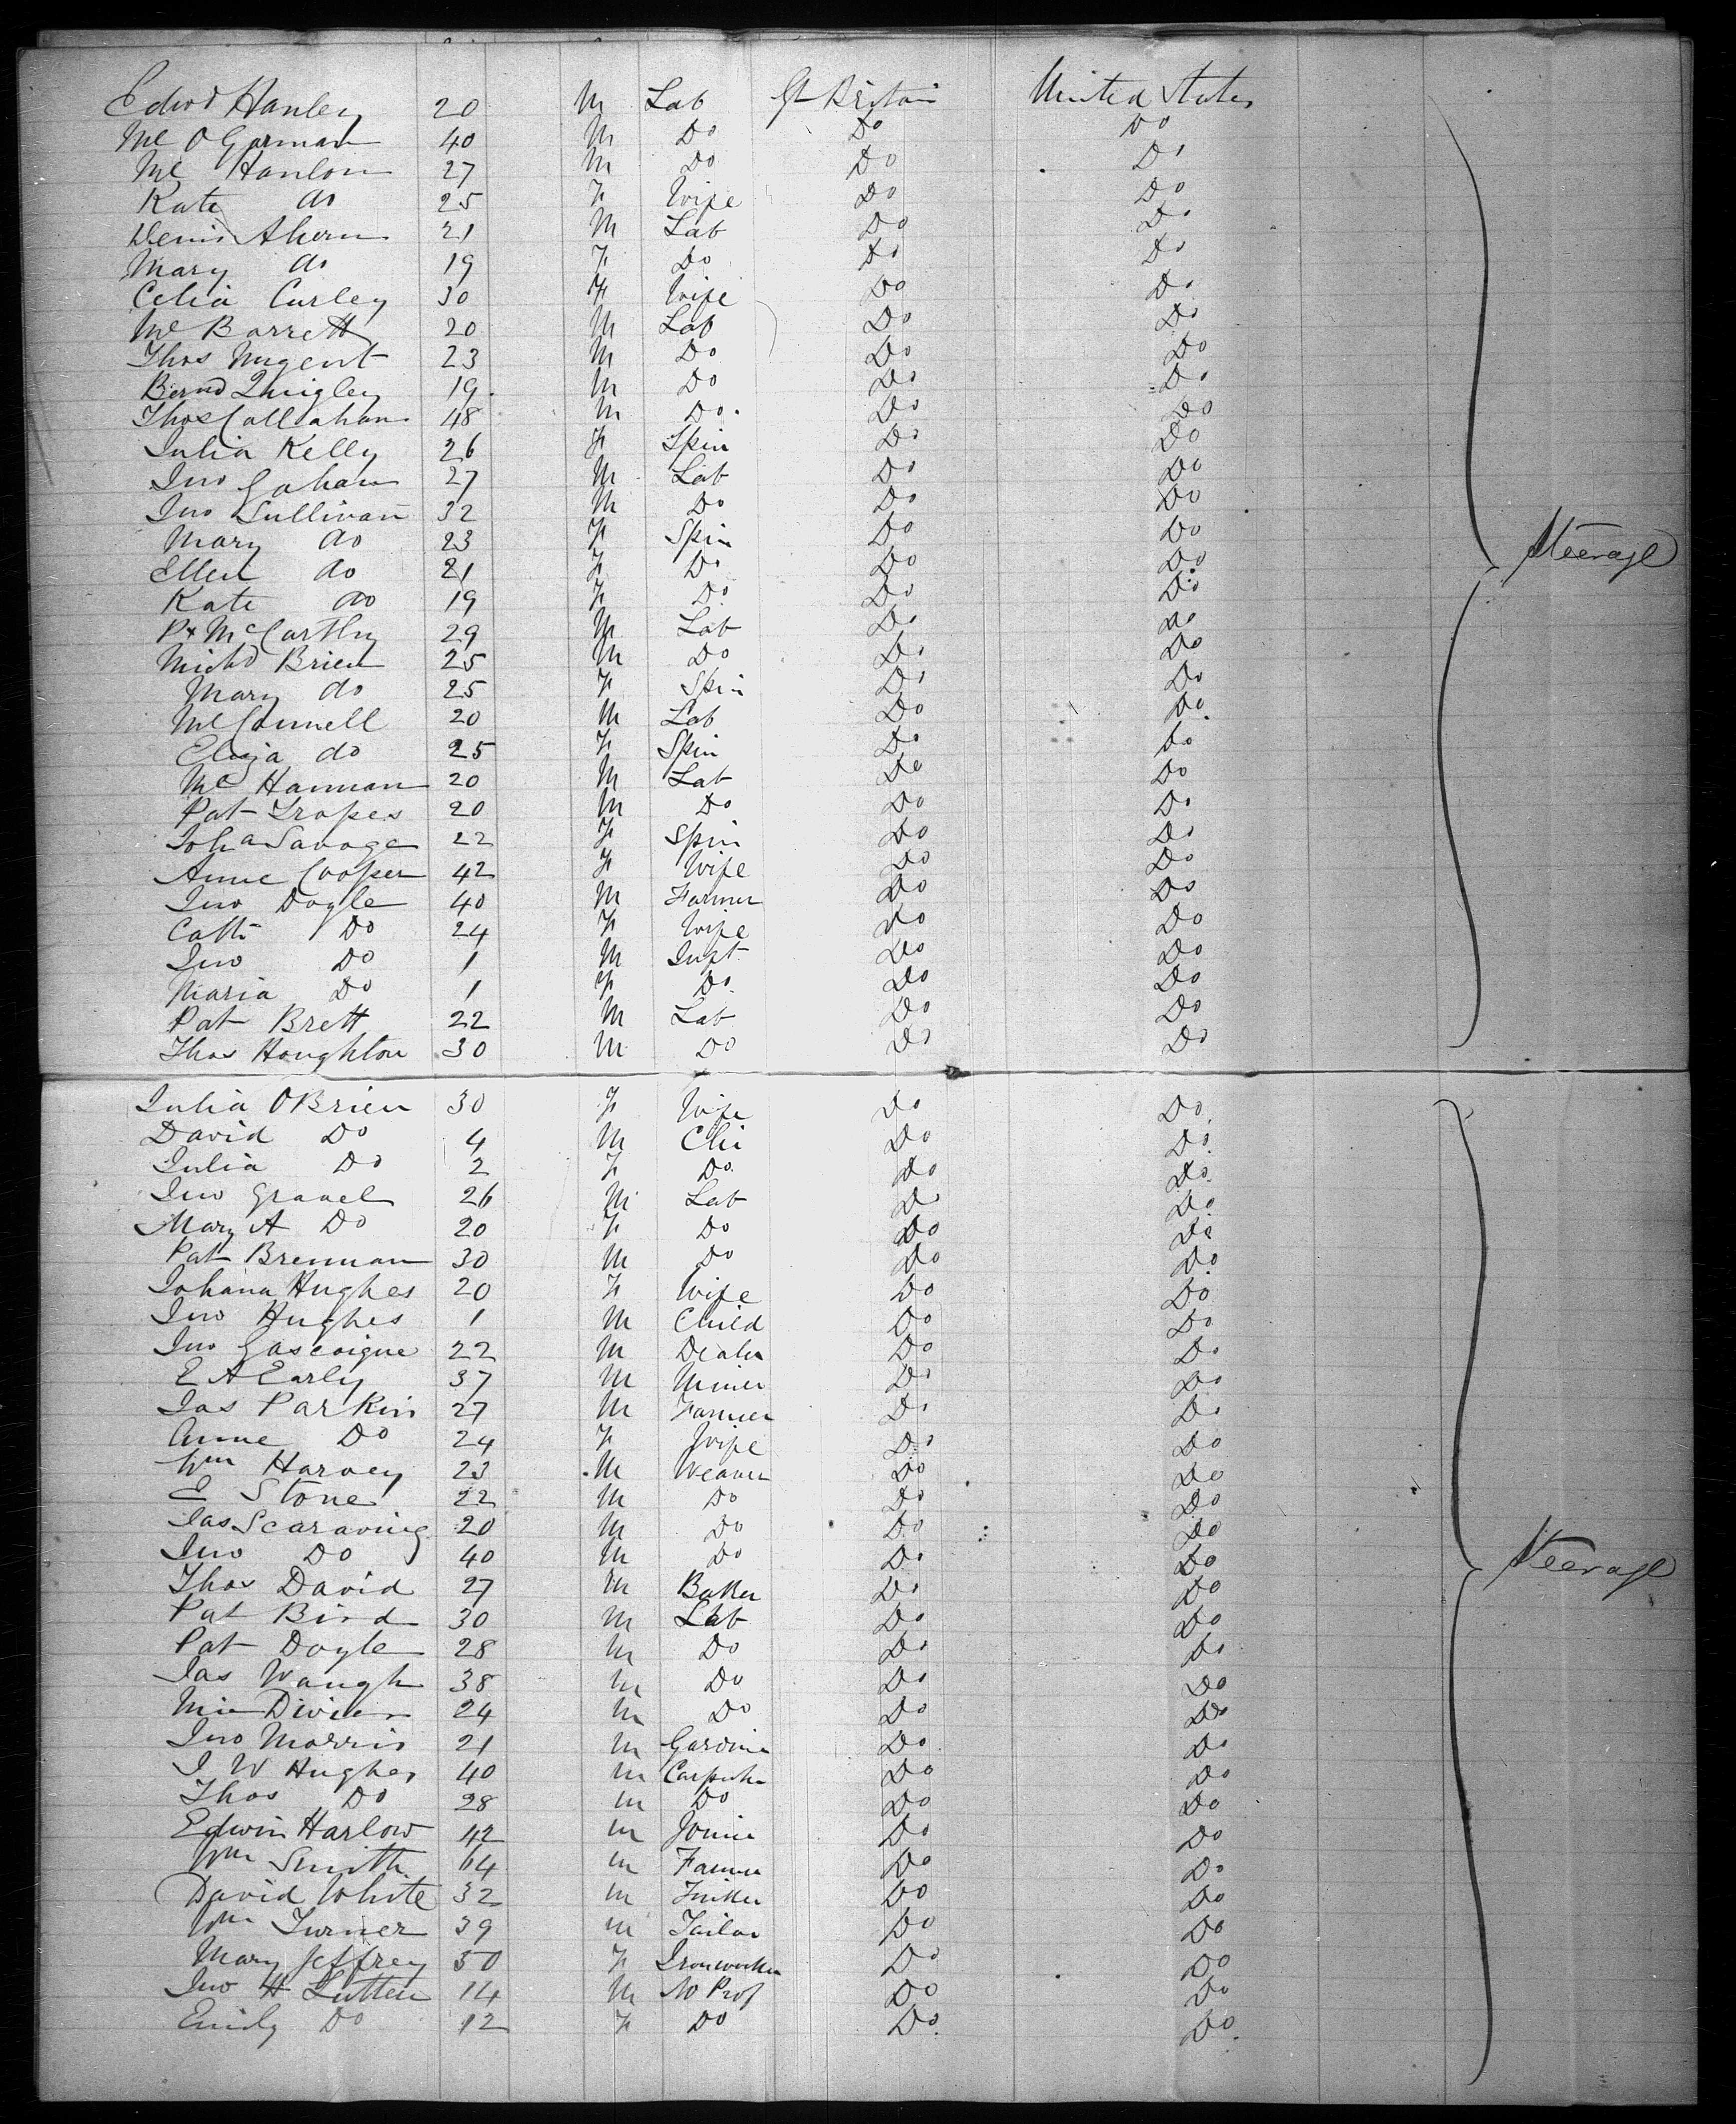 Edwd Hanley 20 M Lab Gt Britain United States
Ml O Gorman 40 M Do Do Do
Ml Hanlon 27 M Do Do Do
Kate do 25 F Wife Do Do
Denis Ahern 21 M Lab Do Do
Mary do 19 F Do Do Do
Celia Curley 30 F Wife Do Do
Ml Barrett 20 M Lab Do Do
Thos Nugent 23 M Do Do Do
Bernd Quigley 19 M Do Do Do
Thos Callahan 48 M Do Do Do
Julia Kelly 26 F Spin Do Do
Jno Gahan 27 M Lab Do Do
Jno Sullivan 32 M Do Do Do
Mary do 23 F Spin Do Do
Steerage
Ellen do 21 F Do Do Do
Kate do 19 F Do Do Do
Pk McCarthy 29 M Lab Do Do
Michd Brien 25 M Do Do Do
Mary do 25 F Spin Do Do
Ml Connell 20 M Lab Do Do
Eliza do 25 F Spin Do Do
Ml Hannan 20 M Lab Do Do
Pat 20 M Do Do Do
Joha Savage 22 F Spin Do Do
Anne Cooper 42 F Wife Do Do
Jno Doyle 40 M Farmer Do Do
Cath Do 24 F Wife Do Do
Jno Do 1 M Inft Do Do
Maria Do 1 F Do Do Do
Pat Brett 22 M Lab Do Do
Thos Houghton 30 M Do Do Do
Julia OBrien 30 F Wife Do Do
David Do 4 M Chi Do Do
Julia Do 2 F Do Do Do
Jno Gravel 26 M Lab Do Do
Mary A Do 20 F Do Do Do
Pat Brennan 30 M Do Do Do
Johana Hughes 20 F Wife Do Do
Jno Hughes 1 M Child Do Do
Jno Gascoigne 22 M Dealer Do Do
E A Early 37 M Miner Do Do
Jas Parkin 27 M Farmer Do Do
Anne Do 24 F Wife Do Do
Wm Harvey 23 M Weaver Do Do
E Stone 22 M Do Do Do
Jas Scaraving 20 M Do Do Do
Jno Do 40 M Do Do Do
Steerage
Thos David 27 M Baker Do Do
Pat Bird 30 M Lab Do Do
Pat Doyle 28 M Do Do Do
Jas Waugh 38 M Do Do Do
24 M Do Do Do
Jno Morris 21 M Gardine Do Do
J W Hughes 40 M Do Do
Thos Do 28 M Do Do Do
Edwin Harlow 42 M Joiner Do Do
Wm Smith 64 M Farmer Do Do
David White 32 M Do Do
Wm Turner 39 M Tailor Do Do
Mary Jeffrey 50 F Ironworker Do Do
Jno H 14 M No Prof Do Do
Emily Do 12 F Do Do Do